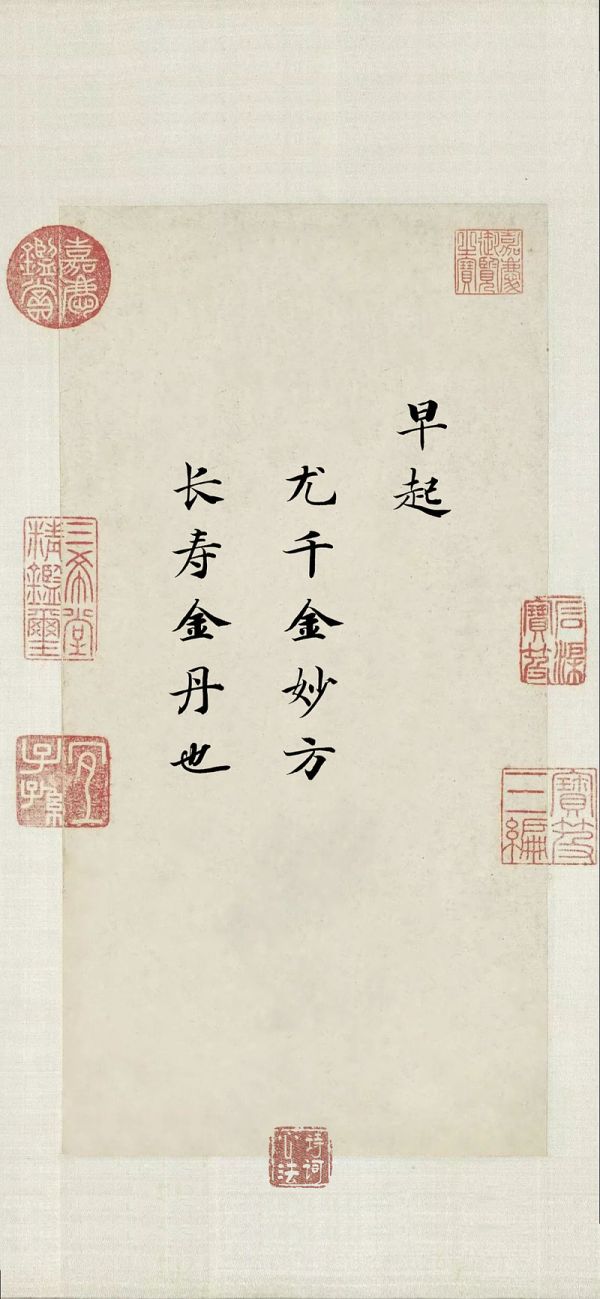 早起
尤千金妙方
长寿金丹也
嘉庆御览之宝
嘉庆鉴赏
三希堂精鉴玺
宜子孙
石渠宝笈
宝笈三编
诗词心法